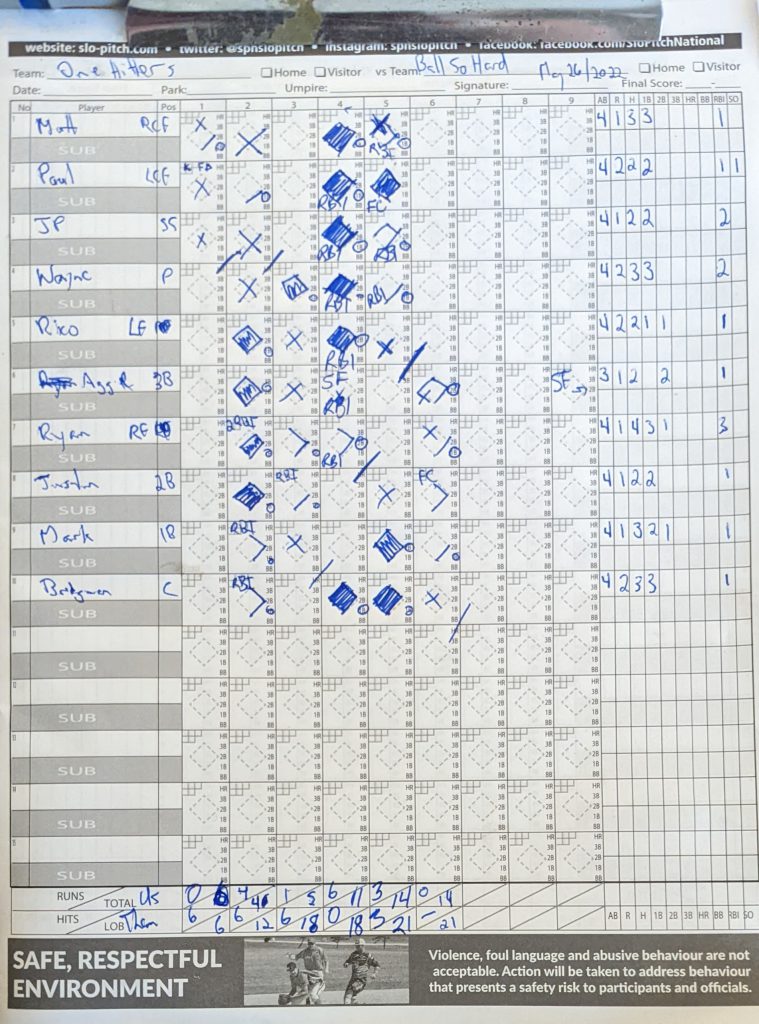 website: slo-pitch.com • twitter: @spnslopitch • instagram: spnslopitch • facebook: facebook.com/SloPitchNational
Team: One Hitters □Home □Visitor vs Team Ball So Hard May 26/2022 □Home □Visitor
Date: Park: Umpire: Signature: Final Score: -
No Player Pos 1 2 3 4 5 6 7 8 9 AB R H 1B 2B 3B HR BB RBI SO
1 Matt RCF RBI 4 1 3 3 1
SUB
2 Paul LCF K RBI FC 4 2 2 2 1 1
SUB
3 JP SS RBI RBI 4 1 2 2 2
SUB
4 Wayne P RBI RBI 4 2 3 3 2
SUB
5 Rixo LF RBI 4 2 2 1 1 1
SUB
6 3B SF RBI SF 3 1 2 2 1
SUB
7 Ryan RF 2RBI RBI 4 1 4 3 1 3
SUB
8 Justin 2B RBI FC 4 1 2 2 1
SUB
9 Mark 1B RBI 4 1 3 2 1 1
SUB
C RBI 4 2 3 3 1
SUB
11
SUB
12
SUB
13
SUB
14
SUB
15
SUB
RUNS TOTAL Us 0 4 4 1 5 6 11 3 14 0 14
HITS LOB Them 6 6 6 12 6 18 0 18 3 21 - 21
AB R H 1B 2B 3B HR BB RBI SO
SAFE, RESPECTFUL
ENVIRONMENT
Violence, foul language and abusive behaviour are not
acceptable. Action will be taken to address behaviour
that presents a safety risk to participants and officials.